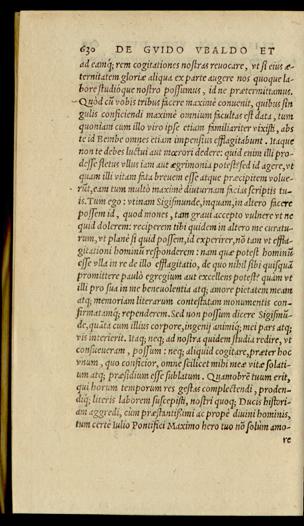 630 DE GVIDO VBALDO ET
ad eamq; rem cogitationes nostras reuocare, vt si eius æ-
ternitatem gloriæ aliqua ex parte augere nos quoque la-
bore studioque nostro possumus, id ne prætermittamus.
Quòd cũ vobis tribus facere maximè conuenit, quibus sin
gulis conficiendi maximè omnium facultas est data, tum
quoniam cum illo viro ipse etiam familiariter vixisti, abs
te id Bembe omnes etiam impensius efflagitabunt. Itaque
non te debes luctui aut mœrori dedere: quid enim illi pro-
desse fletus vllus iam aut ægrimonia potest? sed id agere, vt
quam illi vitam fata breuem esse atque præcipitem volue-
rũt, eam tum multò maximè diuturnam facias scriptis tu-
is. Tum ego: vtinam Sigismunde, inquam, in altero facere
possem id, quod mones, tam graui accepto vulnere vt ne
quid dolerem: reciperem tibi quidem in altero me curatu-
rum, vt planè si quid possem, id experirer, nõ tam vt effla-
gitationi hominũ responderem: nam quæ potest hominũ
esse vlla in re de illo efflagitatio, de quo nihil sibi quisquã
promittere paulò egregium aut excellens potest? quàm vt
illi pro sua in me beneuolentia atq; amore pietatem meam
atq; memoriam literarum contestatam monumentis con-
firmatamq; rependerem. Sed non possum dicere Sigismũ-
de, quãta cum illius corpore, ingenij animiq; mei pars atq;
vis interierit. Itaq; neq; ad nostra quidem studia redire, vt
consueueram, possum: neq; aliquid cogitare, præter hoc
vnum, quo conficior, omne scilicet mihi meæ vitæ solati-
um atq; præsidium esse sublatum. Quamobrẽ tuum erit,
qui horum temporum res gestas complectendi, proden-
diq; literis laborem suscepisti, nostri quoq; Ducis histori-
am aggredi, cùm præstantissimi ac propè diuini hominis,
tum certè Iulio Pontifici Maximo hero tuo nõ solùm amo-
re